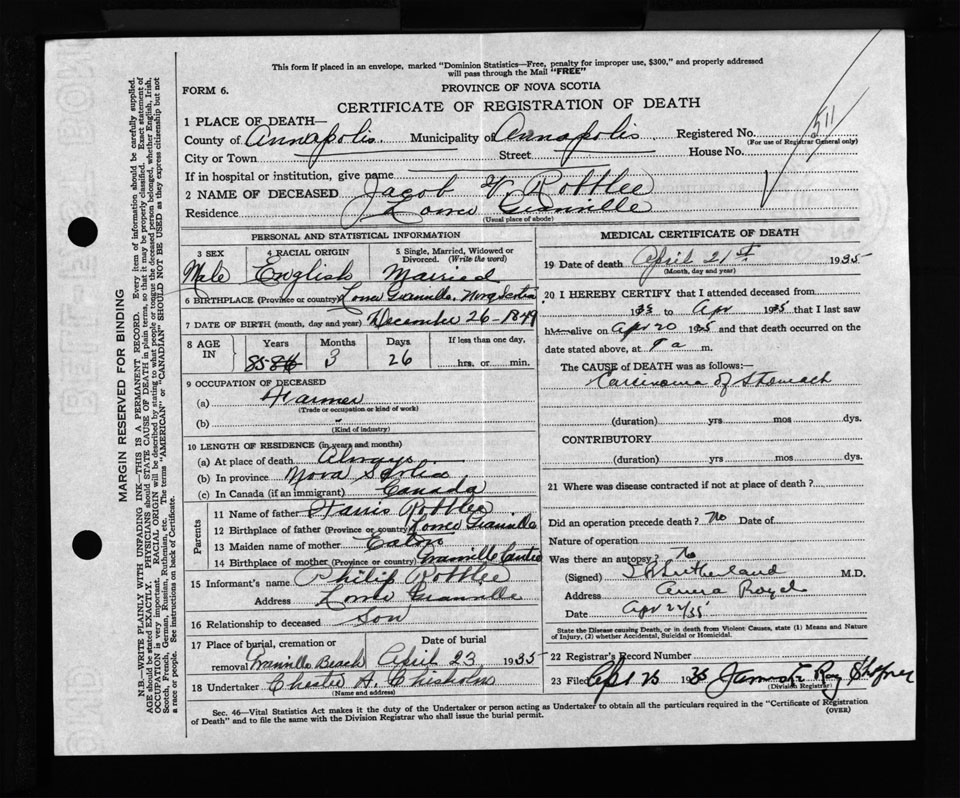 This form if placed in an envelope, marked "Dominion Statistics—Free, penalty for improper use, $300," and properly addressed
will pass through the Mail "FREE"
FORM 6.
PROVINCE OF NOVA SCOTIA
CERTIFICATE OF REGISTRATION OF DEATH
1 PLACE OF DEATH—
County of Annapolis Municipality of Annapolis Registered No.
(For use of Registrar General only)
City or Town Street House No.
If in hospital or institution, give name
2 NAME OF DECEASED Jacob V Robblee
Residence Lower Granville
(Usual place of abode)
PERSONAL AND STATISTICAL INFORMATION
3 SEX 4 RACIAL ORIGIN 5 Single, Married, Widowed or Divorced. (Write the word)
Male English Married
6 BIRTHPLACE (Province or country) Lower Granville, Nova Scotia
7 DATE OF BIRTH (month, day and year) December 26-1849
8 AGE IN Years Months Days If less than one day,
85 86 3 26 hrs. or min.
9 OCCUPATION OF DECEASED
(a) Farmer
(Trade or occupation or kind of work)
(b)
(Kind of industry)
10 LENGTH OF RESIDENCE (in years and months)
(a) At place of death Always
(b) In province Nova Scotia
(c) In Canada (if an immigrant) Canada
Parents
11 Name of father Harris Robblee
12 Birthplace of father (Province or country) Lower Granville
13 Maiden name of mother Eaton
14 Birthplace of mother (Province or country) Granville Centre
15 Informant's name Philip Robblee
Address Lower Granville
16 Relationship to deceased Son
17 Place of burial, cremation or Date of burial
removal Granville Beach April 23 1935
18 Undertaker Chester A. Chisholm
(Name and address)
MEDICAL CERTIFICATE OF DEATH
19 Date of death April 21st 1935
(Month, day and year)
20 I HEREBY CERTIFY that I attended deceased from
1933 to Apr 1935 that I last saw
h alive on Apr 20 1935 and that death occurred on the
date stated above, at 9 a m.
The CAUSE OF DEATH was as follows:—
Carcinoma of Stomach
(duration) yrs mos dys.
CONTRIBUTORY
(duration) yrs mos dys.
21 Where was disease contracted if not at place of death?
Did an operation precede death? No Date of
Nature of operation
Was there an autopsy? No
(Signed) Sutherland M.D.
Address Anna Royal
Date Apr 22/35
State the Disease causing Death, or in death from Violent Causes, state (1) Means and Nature
of Injury, (2) whether Accidental, Suicidal or Homicidal.
22 Registrar's Record Number
23 Filed 1935 Ray Shafner
(Division Registrar)
Sec. 46—Vital Statistics Act makes it the duty of the Undertaker or person acting as Undertaker to obtain all the particulars required in the "Certificate of Registration
of Death" and to file the same with the Division Registrar who shall issue the burial permit.
(OVER)
MARGIN RESERVED FOR BINDING
N.B.—WRITE PLAINLY WITH UNFADING INK—THIS IS A PERMANENT RECORD. Every item of information should be carefully supplied.
AGE should be stated EXACTLY. PHYSICIANS should STATE CAUSE OF DEATH in plain terms, so that it may be properly classified. Exact statement of
OCCUPATION is very important. RACIAL ORIGIN will be described by stating to what people or tongue the deceased person belonged, whether English, Irish,
Scotch, French, German, Russian, Ruthenian, etc. The terms "AMERICAN" or "CANADIAN" SHOULD NOT BE USED as they express citizenship but not
a race or people. See instructions on back of Certificate.